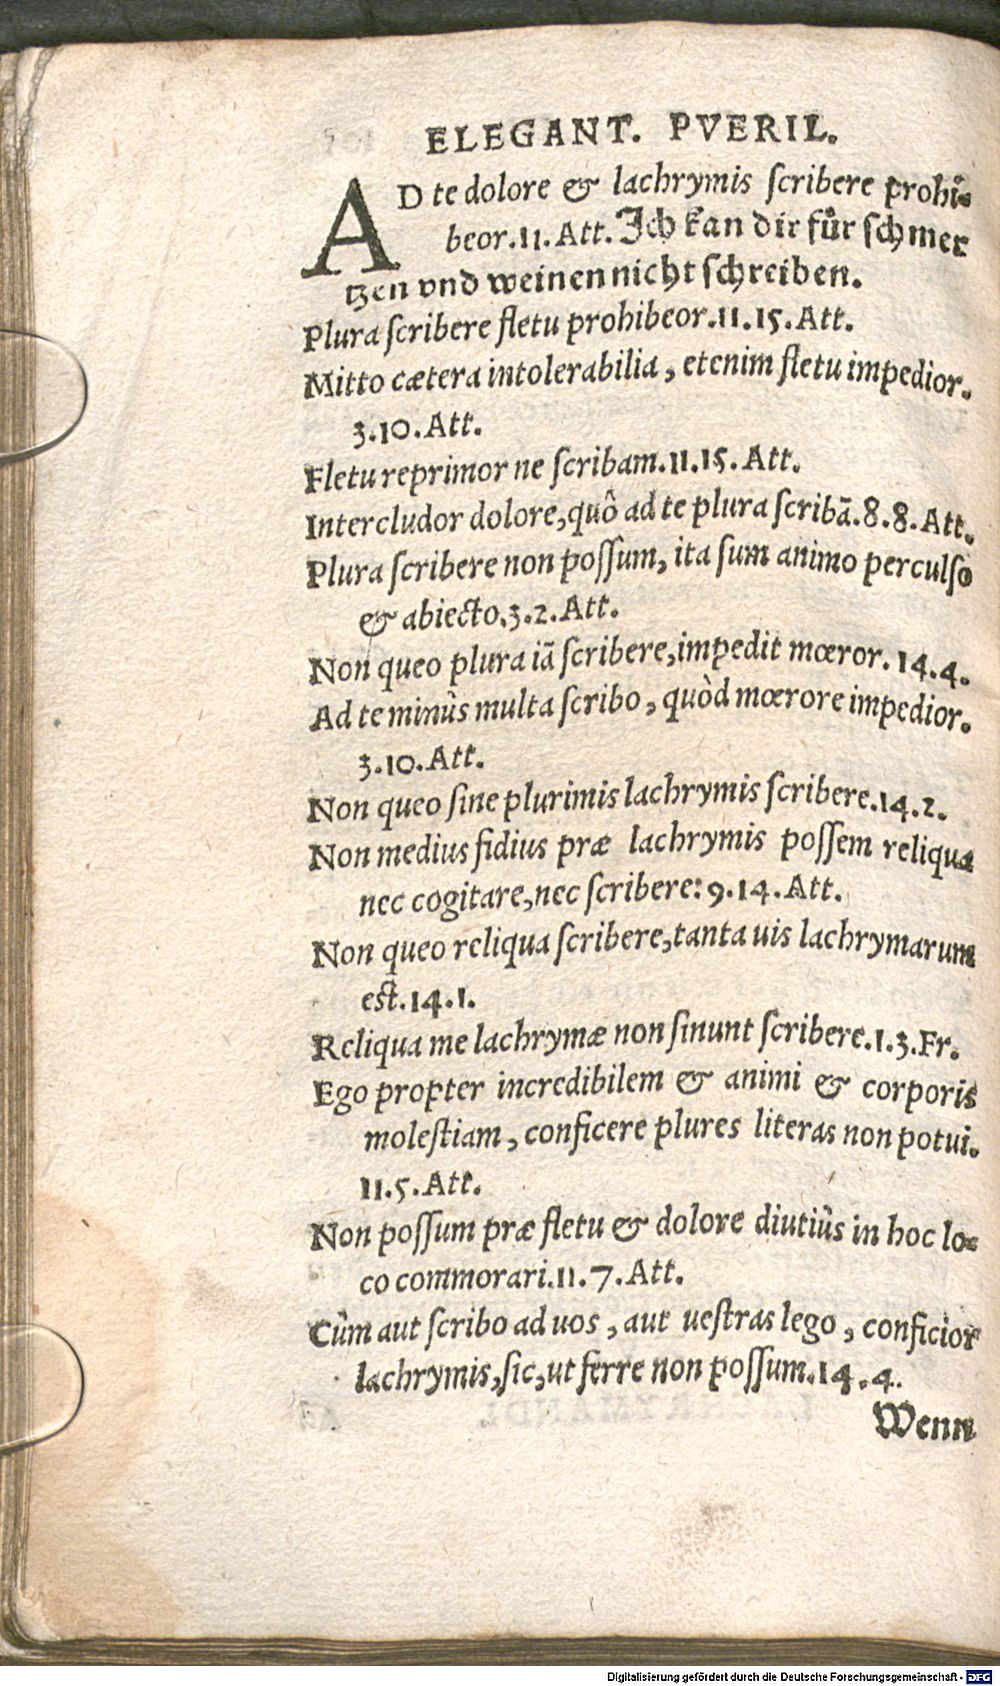 ELEGANT. PVERIL.
AD te dolore & lachrymis ſcribere prohi-
beor.11.Att. Ich kan dir fuͤr ſchmer
tzen vnd weinen nicht ſchreiben.
Plura ſcribere fletu prohibeor.11.15.Att.
Mitto cætera intolerabilia, etenim fletu impedior.
3.10.Att.
Fletu reprimor ne ſcribam.11.15.Att.
Intercludor dolore,quô ad te plura ſcribā.8.8.Att.
Plura ſcribere non poſſum, ita ſum animo perculſo
& abiecto.3.2.Att.
Non queo plura iā ſcribere,impedit mœror.14.4.
Ad te minûs multa ſcribo, quòd mœrore impedior.
3.10.Att.
Non queo ſine plurimis lachrymis ſcribere.14.2.
Non medius fidius præ lachrymis poſſem reliqua
nec cogitare,nec ſcribere:9.14.Att.
Non queo reliqua ſcribere,tanta uis lachrymarum
est.14.1.
Reliqua me lachrymæ non ſinunt ſcribere.1.3.Fr.
Ego propter incredibilem & animi & corporis
moleſtiam, conficere plures literas non potui.
11.5.Att.
Non poſſum præ fletu & dolore diutiûs in hoc lo-
co commorari.11.7.Att.
Cûm aut ſcribo ad uos, aut ueſtras lego, conficior
lachrymis,ſic,ut ferre non poſſum.14.4.
Wenn
Digitalisierung gefördert durch die Deutsche Forschungsgemeinschaft - DFG